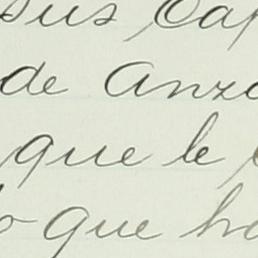 sus Cap
de Anzo
que le
lo que ha